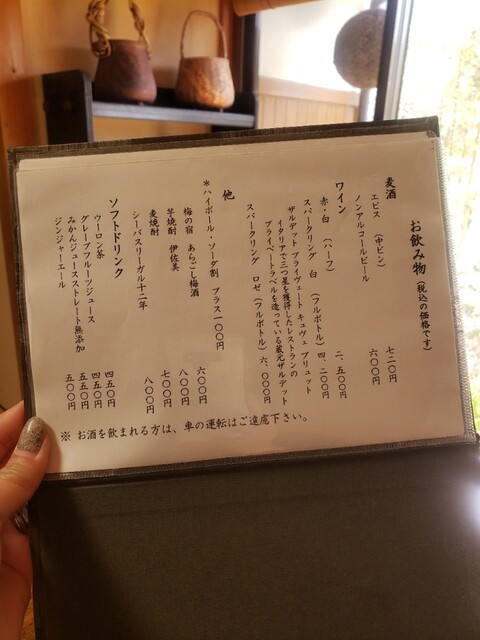 お飲み物(税込の価格です)
麦酒
エビス (中ビン) 七二〇円
ノンアルコールビール 六〇〇円
ワイン
赤・白 (ハーフ) 二、五〇〇円
スパークリング 白 (フルボトル) 四、二〇〇円
ザルデット プライヴェート キュヴェ ブリュット
イタリアで三つ星を獲得したレストランの
プライベートラベルを造っている蔵元ザルデット
スパークリング ロゼ (フルボトル) 六、〇〇〇円
他
*ハイボール・ソーダ割 プラス一〇〇円
梅の宿 あらごし梅酒 六〇〇円
芋焼酎 伊佐美 八〇〇円
麦焼酎 七〇〇円
シーバスリーガル十二年 八〇〇円
ソフトドリンク
ウーロン茶 四五〇円
グレープフルーツジュース 四五〇円
みかんジュースストレート無添加 五〇〇円
ジンジャーエール 五〇〇円
※ お酒を飲まれる方は、車の運転はご遠慮下さい。